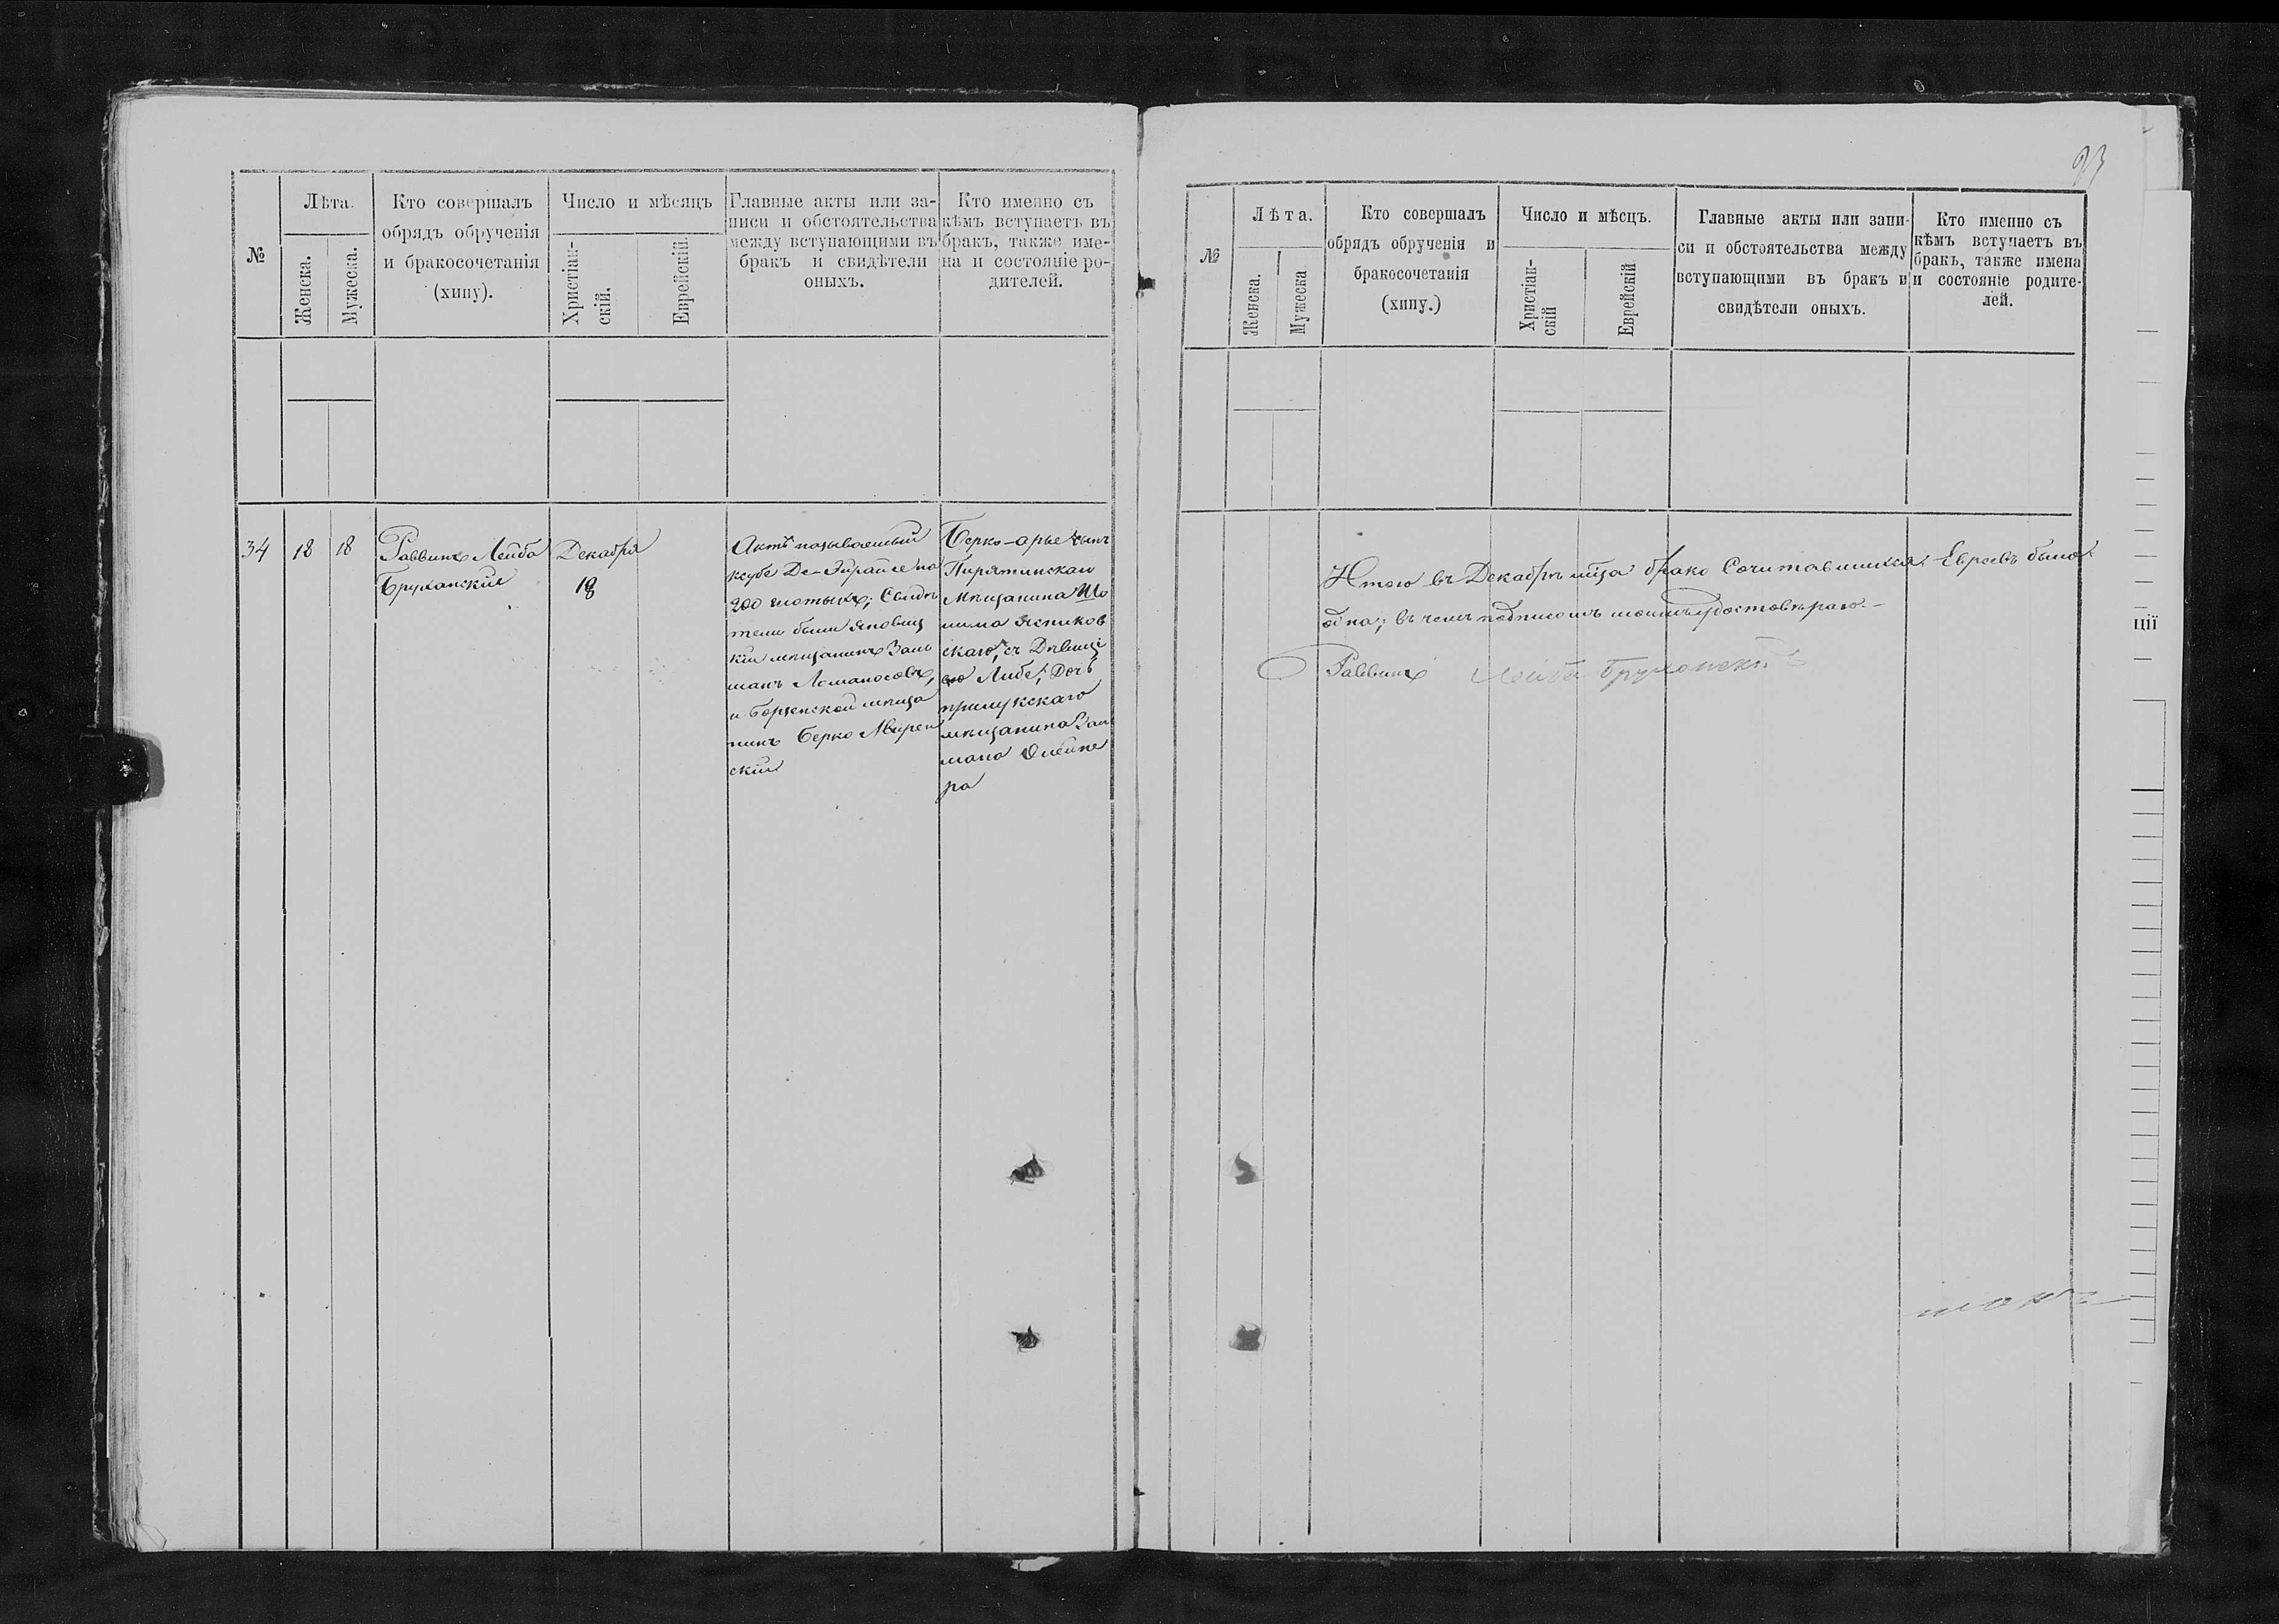 №
Лѣта.
Женска.
Мужеска.
Кто совершалъ
обрядъ обрученія
и бракосочетанія
(хипу).
Число и мѣсяцъ
Христіан-
скій.
Еврейскій.
Главные акты или за-
писи и обстоятельства
между вступающими въ
бракъ и свидѣтели
оныхъ.
Кто именно съ
кѣмъ вступаетъ въ
бракъ, также име-
на и состояніе ро-
дителей.
34
18
18
Раввинъ Лейба
Бруханскій
Декабря
18
Актъ называемый
ксубе Де-Эйрайсе на
200 злотыхъ; Свидѣ
тели были
кій мѣщанинъ Заль
манъ Ломаносовъ,
и Борзенской мѣща
нинъ Берко Мирен
скій
Берко-Арье сынъ
Пирятинскаго
Мѣщанина Шо
лима Ясников
скаго, съ Дѣвице
ю Либе, Дочь
прилукскаго
мѣщанина Зал
мана Олейне
ра
93
№
Лѣта.
Женска.
Мужеска
Кто совершалъ
обрядъ обрученія и
бракосочетанія
(хипу.)
Число и мѣсцъ.
Христіан-
скій
Еврейскій
Главные акты или запи-
си и обстоятельства между
вступающими въ бракъ и
свидѣтели оныхъ.
Кто именно съ
кѣмъ вступаетъ въ
бракъ, также имена
и состояніе родите-
лей.
Итого въ Декабрѣ мѣца брако Сочитавшихся Евреевъ была
одна; въ чемъ подписомъ моимъ удостовѣряю.-
Раввинъ Лейба Бруханскій
ції